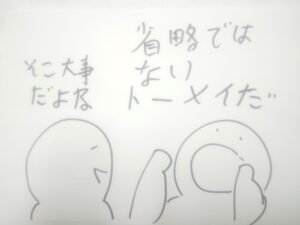 省略では
ない
トーメイだ
そこ大事
だよな